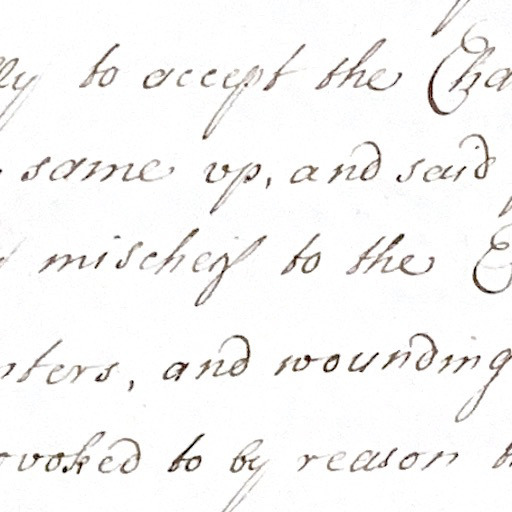 lly to accept the Cha
same up, and said
mischeif to the E
nters, and wounding
ovoked to by reason th